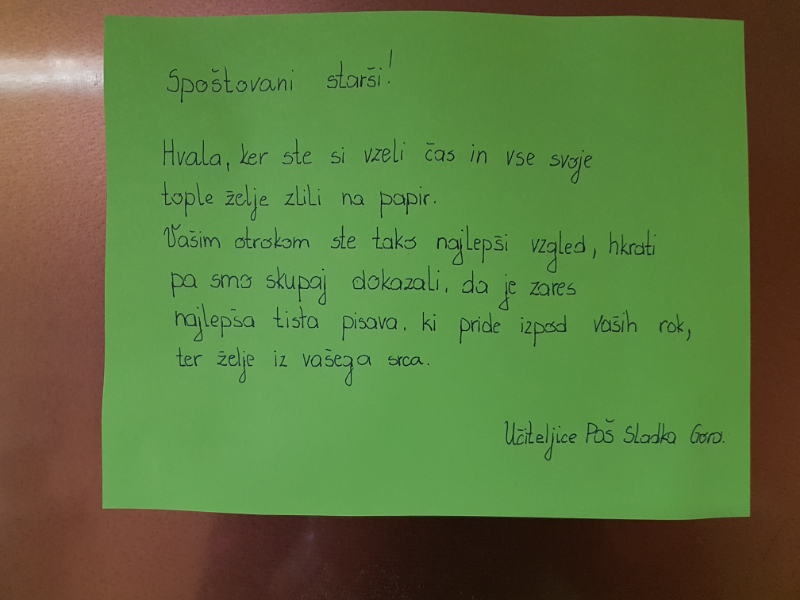 Spoštovani starši!
Hvala, ker ste si vzeli čas in vse svoje
tople želje zlili na papir.
Vašim otrokom ste tako najlepši vzgled, hkrati
pa smo skupaj dokazali, da je zares
najlepša tista pisava, ki pride izpod vaših rok,
ter želje iz vašega srca.
Učiteljice Poš Sladka Gora.